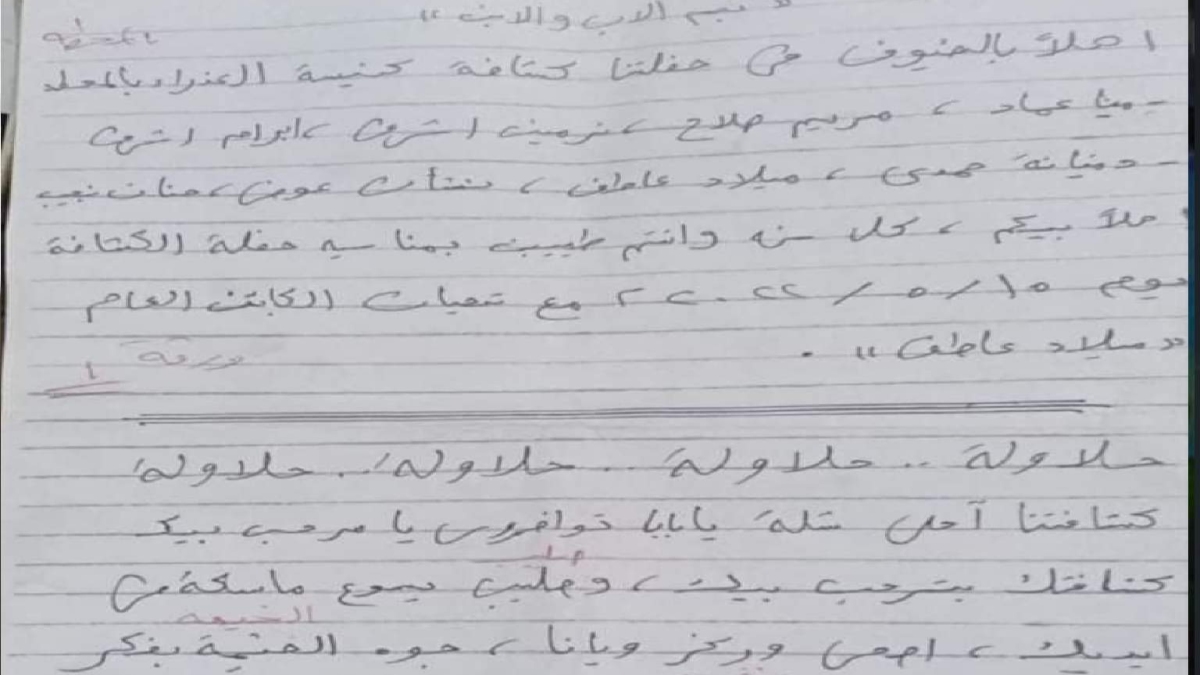 بسم الاب والابن "
بالمحطه
اهلاً بالضيوف فى حفلتنا كشافة كنيسة العذراء بالمحلة
- مينا عماد ، مريم صلاح ، نرمين اشرف ، ابرام اشرف
- دميانة حمدى ، ميلاد عاطف ، نشأت عوض ، حنان نجيب
اهلاً بيكم ، كل سنه وانتم طيبين بمناسبه حفلة الكشافة
يوم ١٥ / ٥ / ٢٠٢٢ مع تحيات الكابتن العام
" ميلاد عاطف " .
ورقة ١
حلاولة .. حلاولة .. حلاولة .. حلاولة
كشافتنا أحلى شلة يا بابا توافروس يا مرحب بيك
كشافتك بترحب بيك ، وصليب يسوع ماسكة فى
الخيمه
ايديك ، اصحى وركز ويانا ، جوه الخيمة بفكر